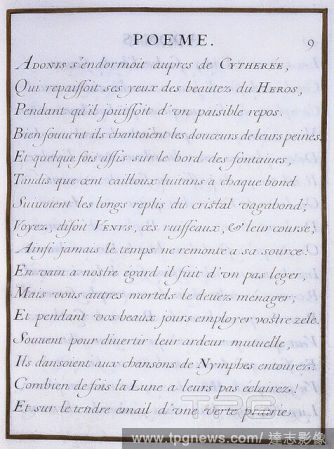 POEME.
9
ADONIS s'endormoit aupres de CYTHERÉE,
Qui repaissoit ses yeux des beautez du HEROS,
Pendant qu'il jouissoit d'vn paisible repos.
Bien souuent ils chantoient les douceurs de leurs peines.
Et quelque fois assis sur le bord des fontaines,
Tandis que cent cailloux luitans a chaque bond
Suiuoient les longs replis du cristal vagabond;
Voyez, disoit VENVS, ces ruisseaux, & leur course;
Ainsi jamais le temps ne remonte a sa source:
En vain a nostre egard il fuit d'vn pas leger,
Mais vous autres mortels le deuez menager,
Et pendant vos beaux jours employer vostre zele.
Souuent pour diuertir leur ardeur mutuelle,
Ils dansoient aux chansons de Nymphes entourez:
Combien de fois la Lune a leurs pas eclairez!
Et sur le tendre email d'vne verte prairie,
TPG
www.tpgnews.com / 達志影像